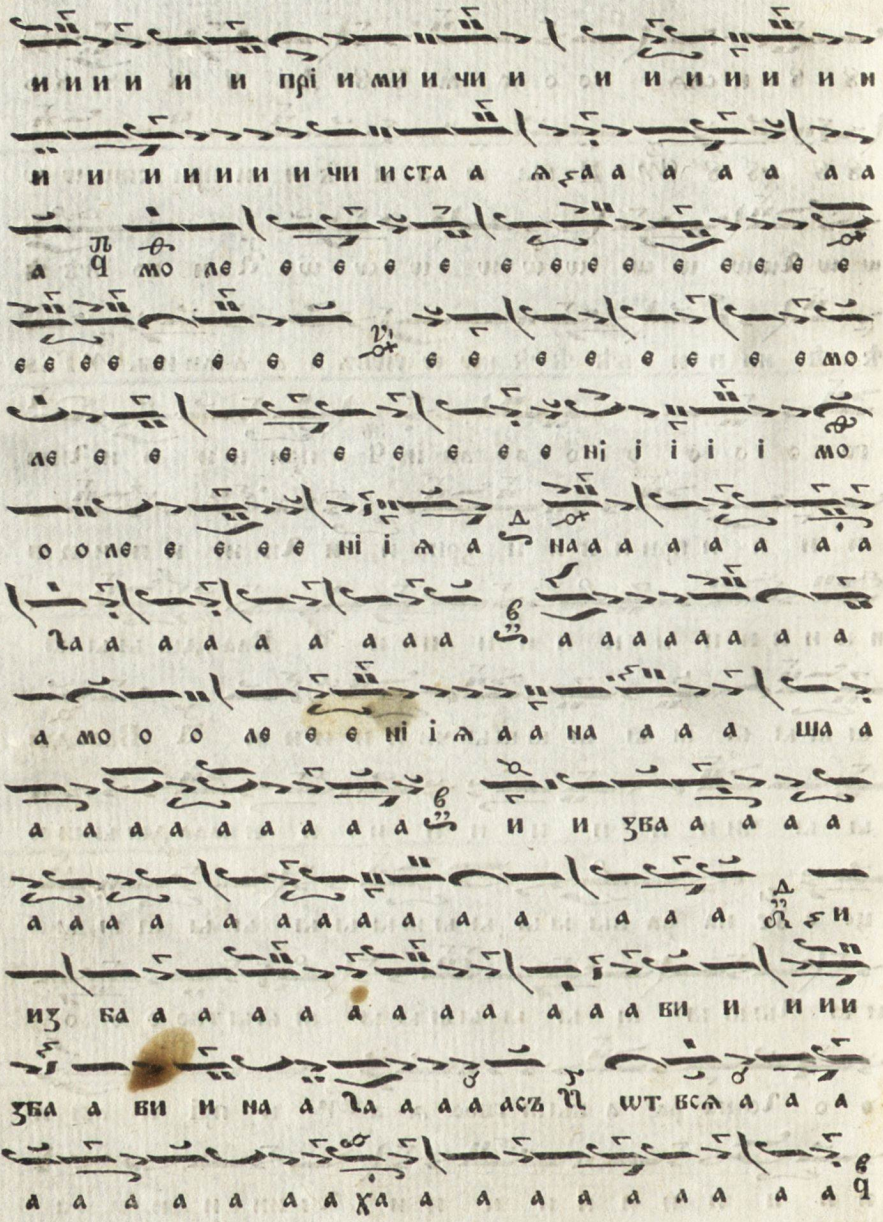 и и и и и и прі и ми и чи и и и и и и и и
и и и и и и и чи и ста а ѧ а а а а а а а
а мо ле е е е е е е е е е е е е е е
е е е е е е е е е е е е е е е е мо
ле е е е е е е е е е ні і і і і мо
о о ле е е е е е ні і ѧ а на а а а а а а а
ꙗ а а а а а а а а а а а а а а а а
а мо о о ле е е е ні і ѧ а а на а а а ша а
а а а а а а а а а а и и ꙁва а а а а
а а а а а а а а а а а а а а а и
иꙁ ба а а а а а а а а а а а ви и и и и
ꙁба а ви и на а ꙗ а а а а асъ ѿт всѧ а а а
а а а а а а а ха а а а а а а а а а